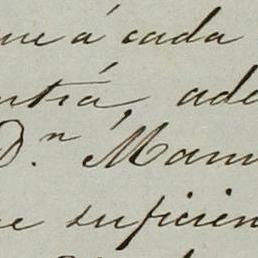 que á cada
ntrá, ade
D.n Manu
e suficien